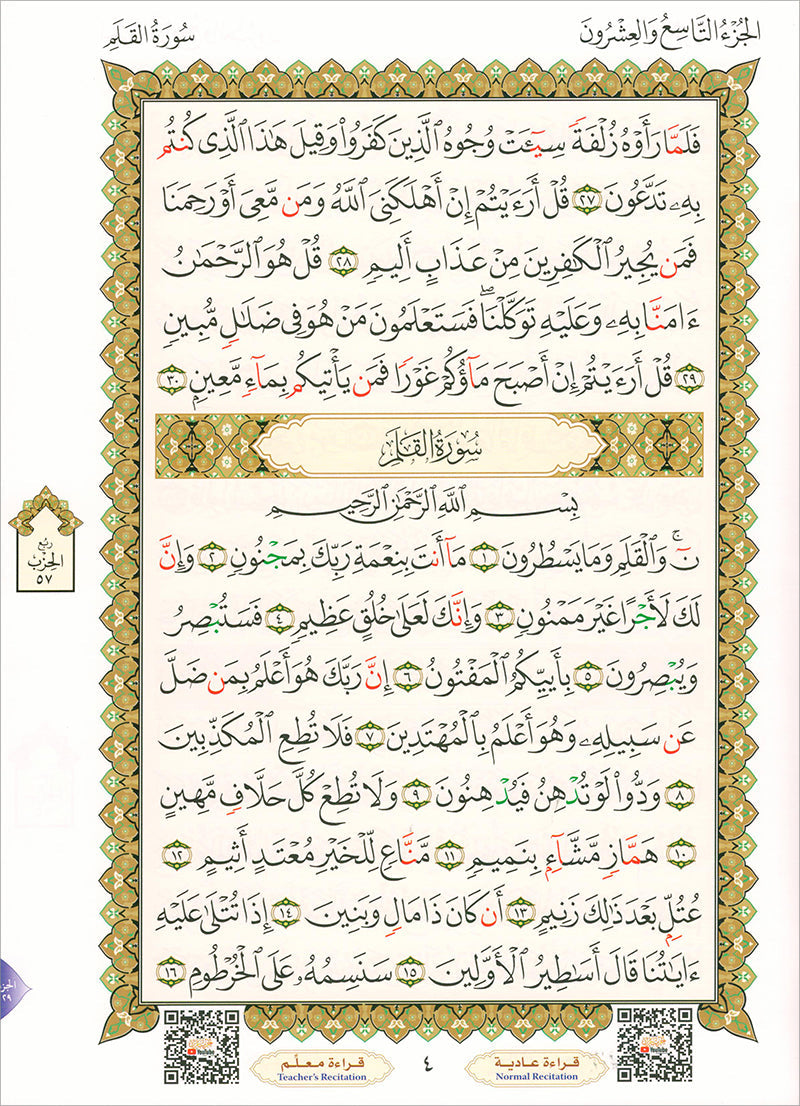 الجُزْءُ التَّاسِعُ وَالعِشْرُونَ
سُورَةُ القَلَمِ
فَلَمَّا رَأَوْهُ زُلْفَةً سِيٓـَٔتْ وُجُوهُ ٱلَّذِينَ كَفَرُوا۟ وَقِيلَ هَٰذَا ٱلَّذِى كُنتُم
بِهِۦ تَدَّعُونَ ٢٧ قُلْ أَرَءَيْتُمْ إِنْ أَهْلَكَنِىَ ٱللَّهُ وَمَن مَّعِىَ أَوْ رَحِمَنَا
فَمَن يُجِيرُ ٱلْكَٰفِرِينَ مِنْ عَذَابٍ أَلِيمٍ ٢٨ قُلْ هُوَ ٱلرَّحْمَٰنُ
ءَامَنَّا بِهِۦ وَعَلَيْهِ تَوَكَّلْنَا ۖ فَسَتَعْلَمُونَ مَنْ هُوَ فِى ضَلَٰلٍ مُّبِينٍ
٢٩ قُلْ أَرَءَيْتُمْ إِنْ أَصْبَحَ مَآؤُكُمْ غَوْرًا فَمَن يَأْتِيكُم بِمَآءٍ مَّعِينٍ ٣٠
سُورَةُ القَلَمِ
بِسْمِ ٱللَّهِ ٱلرَّحْمَٰنِ ٱلرَّحِيمِ
نٓ ۚ وَٱلْقَلَمِ وَمَا يَسْطُرُونَ ١ مَآ أَنتَ بِنِعْمَةِ رَبِّكَ بِمَجْنُونٍ ٢ وَإِنَّ
لَكَ لَأَجْرًا غَيْرَ مَمْنُونٍ ٣ وَإِنَّكَ لَعَلَىٰ خُلُقٍ عَظِيمٍ ٤ فَسَتُبْصِرُ
وَيُبْصِرُونَ ٥ بِأَييِّكُمُ ٱلْمَفْتُونُ ٦ إِنَّ رَبَّكَ هُوَ أَعْلَمُ بِمَن ضَلَّ
عَن سَبِيلِهِۦ وَهُوَ أَعْلَمُ بِٱلْمُهْتَدِينَ ٧ فَلَا تُطِعِ ٱلْمُكَذِّبِينَ
٨ وَدُّوا۟ لَوْ تُدْهِنُ فَيُدْهِنُونَ ٩ وَلَا تُطِعْ كُلَّ حَلَّافٍ مَّهِينٍ
١٠ هَمَّازٍ مَّشَّآءٍۭ بِنَمِيمٍ ١١ مَّنَّاعٍ لِّلْخَيْرِ مُعْتَدٍ أَثِيمٍ ١٢
عُتُلٍّۭ بَعْدَ ذَٰلِكَ زَنِيمٍ ١٣ أَن كَانَ ذَا مَالٍ وَبَنِينَ ١٤ إِذَا تُتْلَىٰ عَلَيْهِ
ءَايَٰتُنَا قَالَ أَسَٰطِيرُ ٱلْأَوَّلِينَ ١٥ سَنَسِمُهُۥ عَلَى ٱلْخُرْطُومِ ١٦
ربع
الحزب
٥٧
الجزء
٢٩
قراءة عادية
Normal Recitation
YouTube
٤
قراءة معلّم
Teacher's Recitation
YouTube